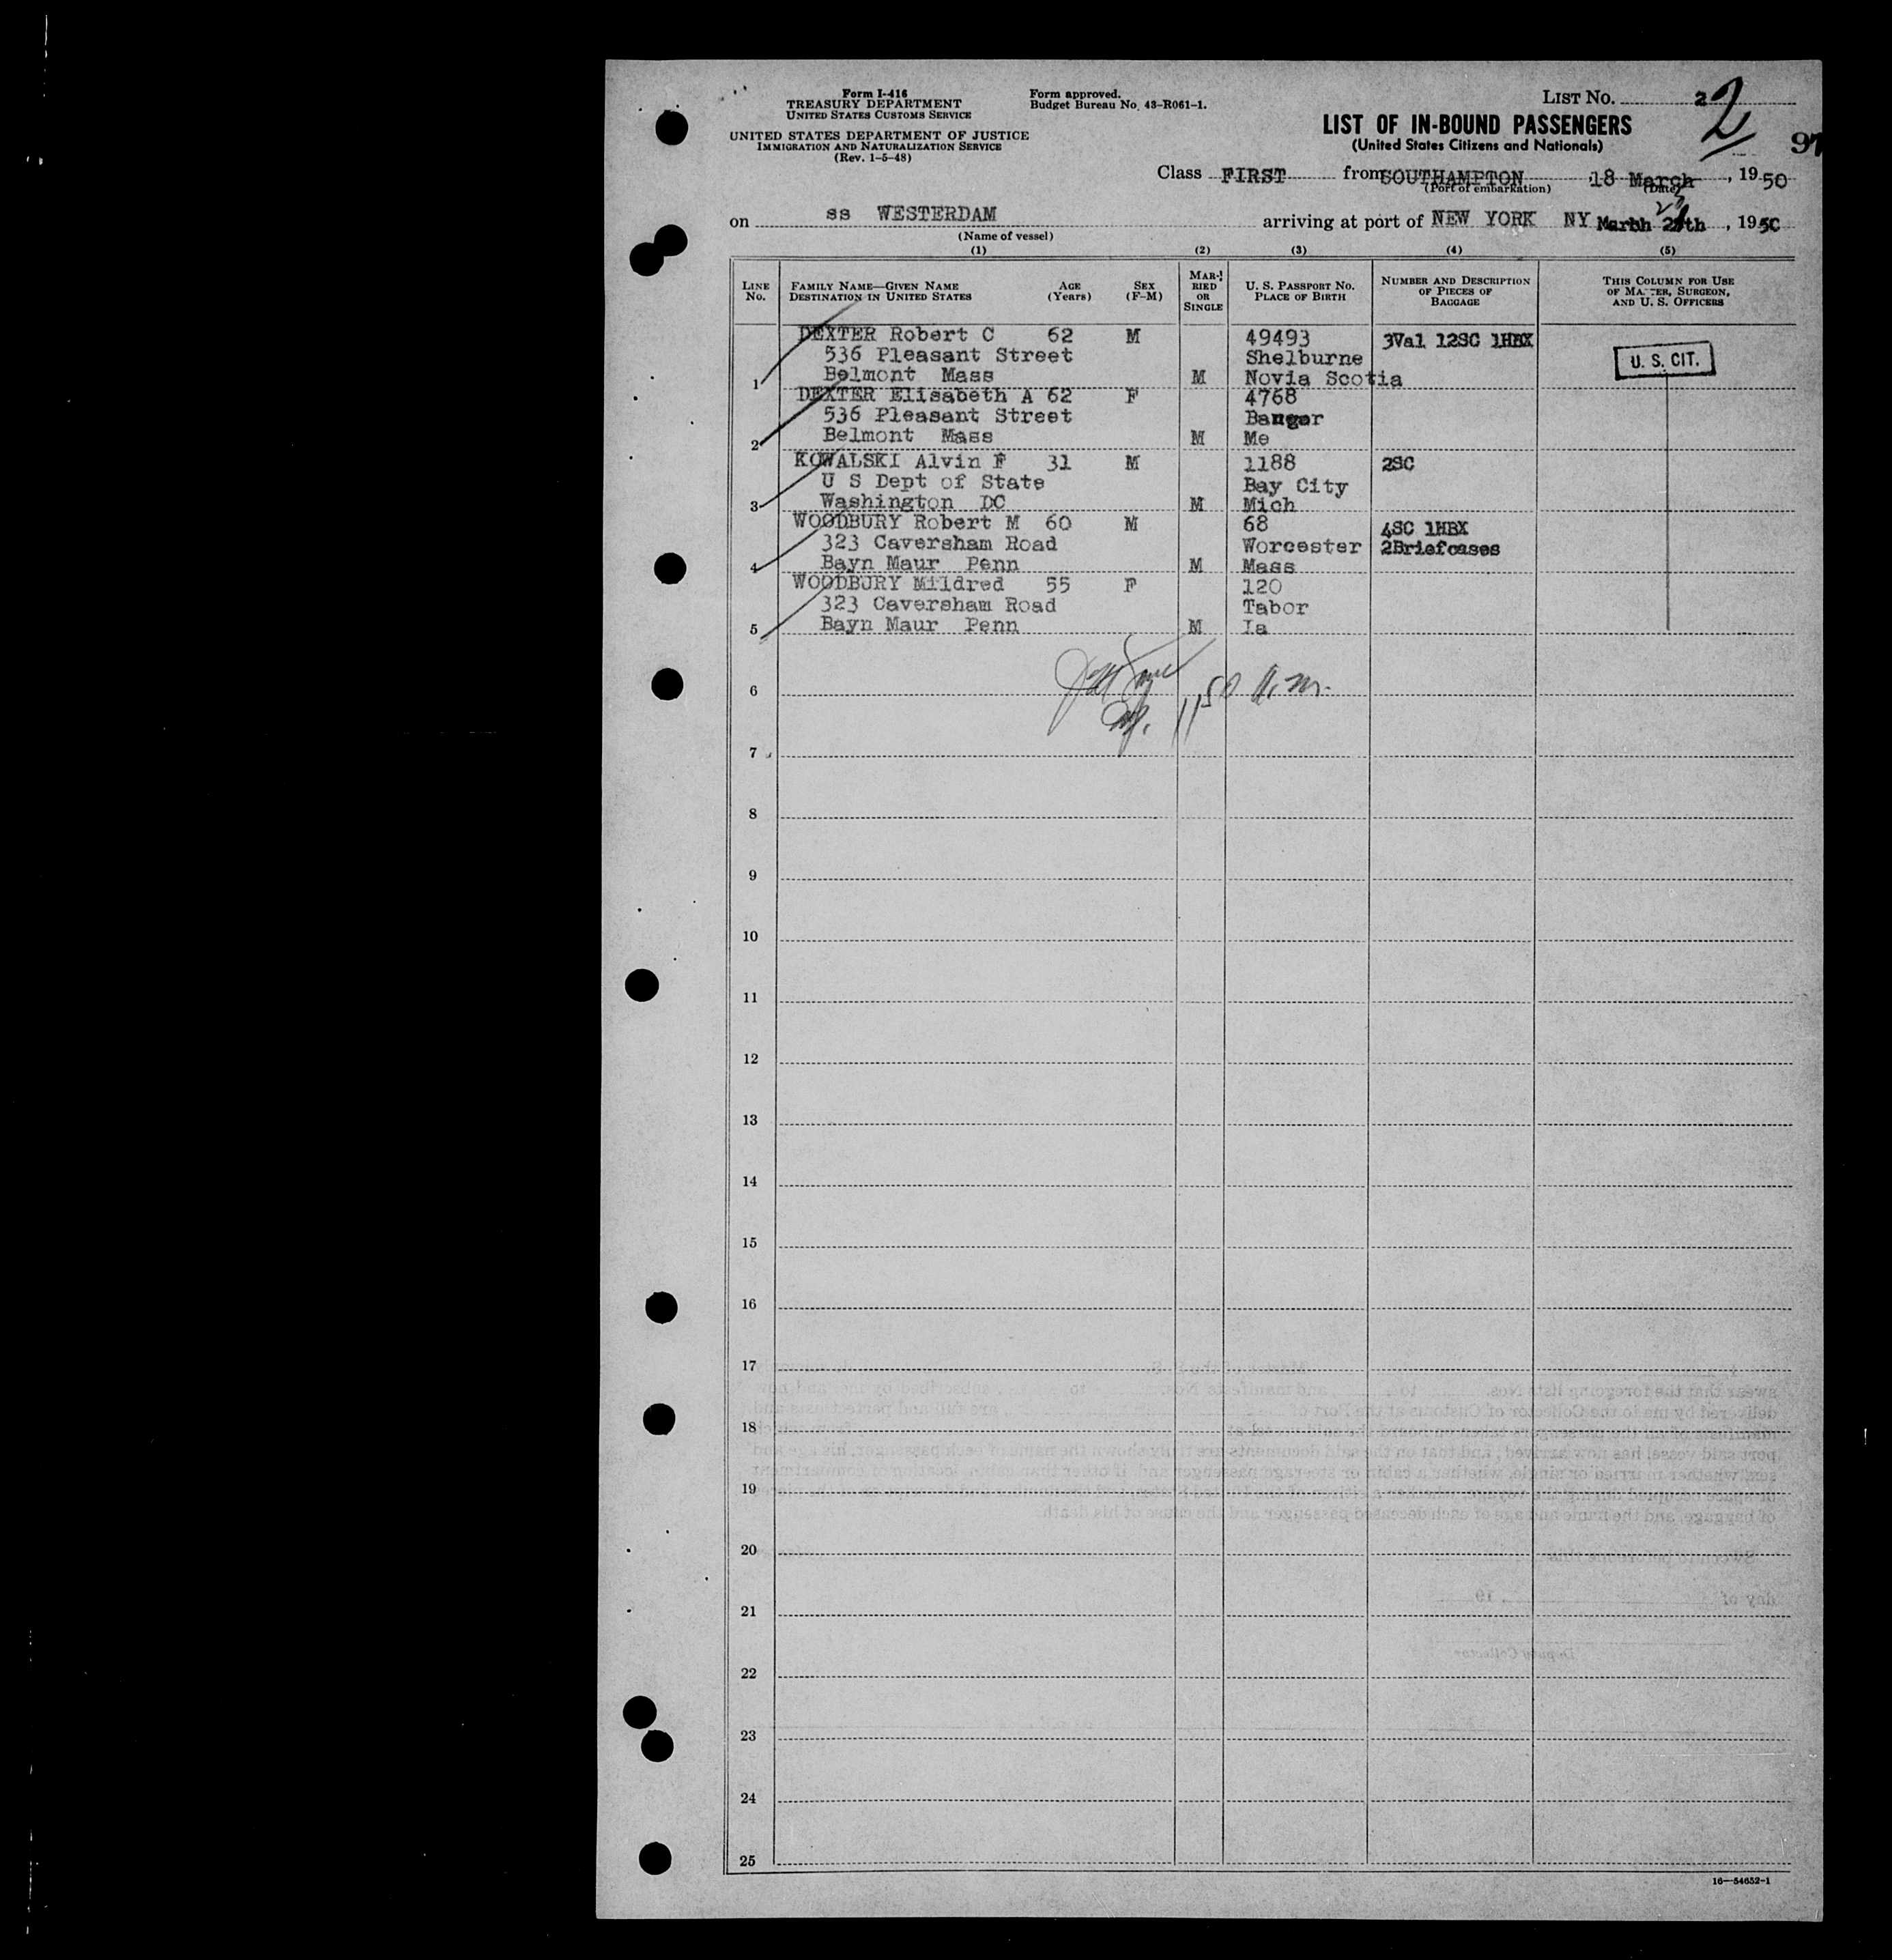 Form I-416
TREASURY DEPARTMENT
UNITED STATES CUSTOMS SERVICE
UNITED STATES DEPARTMENT OF JUSTICE
IMMIGRATION AND NATURALIZATION SERVICE
(Rev. 1-5-48)
Form approved.
Budget Bureau No. 43-R061-1.
LIST NO. 2 2
LIST OF IN-BOUND PASSENGERS
(United States Citizens and Nationals)
97
Class FIRST from SOUTHAMPTON 18 March, 1950
(Port of embarkation) (Date)
on ss WESTERDAM arriving at port of NEW YORK NY, 1950
(Name of vessel)
(1) (2) (3) (4) (5)
LINE NO. FAMILY NAME—GIVEN NAME DESTINATION IN UNITED STATES AGE (Years) SEX (F-M) MARRIED OR SINGLE U. S. PASSPORT NO. PLACE OF BIRTH NUMBER AND DESCRIPTION OF PIECES OF BAGGAGE THIS COLUMN FOR USE OF MASTER, SURGEON, AND U. S. OFFICERS
DEXTER Robert C 62 M 49493 3Val 12SC 1HBX
536 Pleasant Street Shelburne U. S. CIT.
1 Belmont Mass M Novia Scotia
DEXTER Elisabeth A 62 F 4768
536 Pleasant Street Bangor
2 Belmont Mass M Me
KOWALSKI Alvin F 31 M 1188 2SC
U S Dept of State Bay City
3 Washington DC M Mich
WOODBURY Robert M 60 M 68 4SC 1HBX
323 Caversham Road Worcester 2Briefcases
4 Bayn Maur Penn M Mass
WOODBURY Mildred 55 F 120
323 Caversham Road Tabor
5 Bayn Maur Penn M Ia
1150 A.M.
6
7
8
9
10
11
12
13
14
15
16
17
18
19
20
21
22
23
24
25
16—54652-1